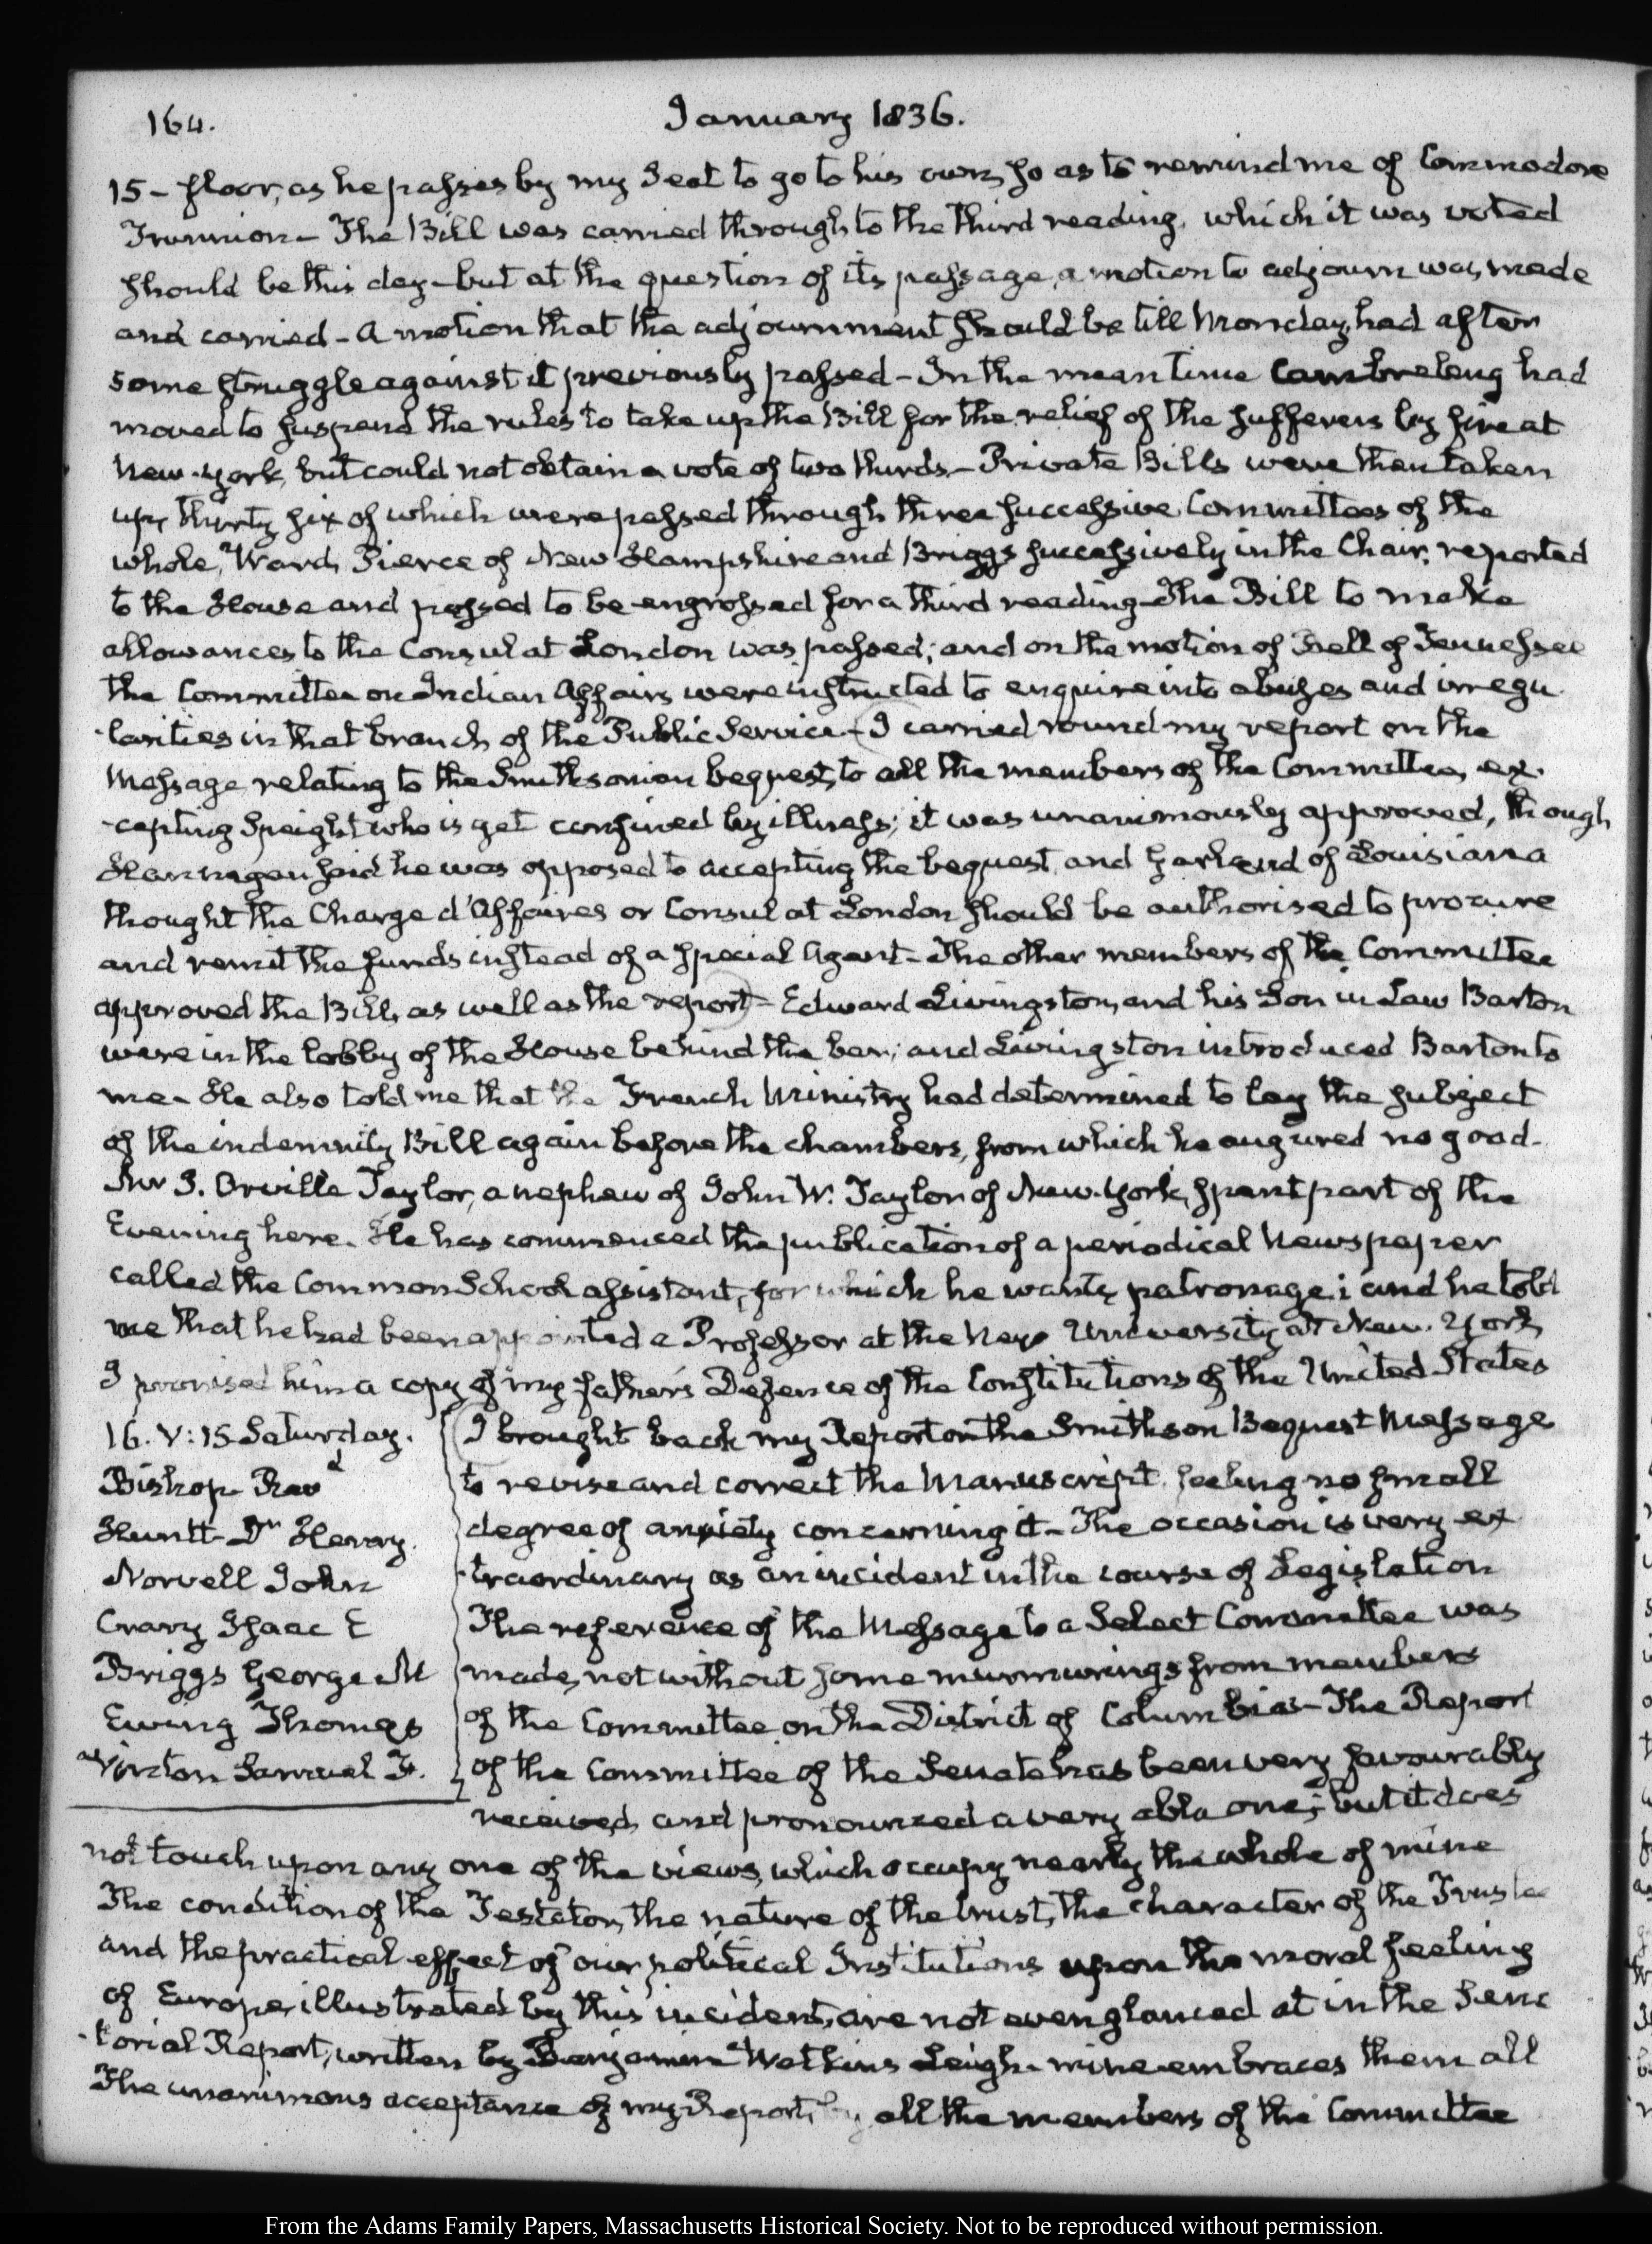 164.
January 1836.
15 - floor, as he passes by my Seat to go to his own, so as to remind me of Commodore
Trunnion - The Bill was carried through to the third reading, which it was voted
should be this day - but at the question of its passage, a motion to adjourn was made
and carried - A motion that the adjournment should be till Monday, had after
some struggle against it previously passed - In the mean time Cambreleng had
moved to suspend the rules to take up the Bill for the relief of the sufferers by fire at
New-York, but could not obtain a vote of two thirds - Private Bills were then taken
up, thirty six of which were passed through three successive Committees of the
whole, Ward, Pierce of New Hampshire and Briggs successively in the Chair, reported
to the House and passed to be engrossed for a third reading - The Bill to make
allowances to the Consul at London was passed; and on the motion of Bell of Tennessee
the Committee on Indian Affairs were instructed to enquire into abuses and irregu
-larities in that branch of the Public Service - I carried round my report on the
Message relating to the Smithsonian bequest, to all the members of the Committee, ex-
-cepting Speight who is yet confined by illness; it was unanimously approved, though
Hannegan said he was opposed to accepting the bequest, and Garland of Louisiana
thought the Charge d'Affaires or Consul at London should be authorised to procure
and remit the funds instead of a special Agent - The other members of the Committee
approved the Bill, as well as the report - Edward Livingston, and his Son in Law Barton
were in the lobby of the House behind the bar; and Livingston introduced Barton to
me - He also told me that the French Ministry had determined to lay the subject
of the indemnity Bill again before the chambers, from which he augured no good -
Mr J. Orville Taylor, a nephew of John W. Taylor of New-York, spent part of the
Evening here. He has commenced the publication of a periodical Newspaper
called the Common School assistant, for which he wants patronage; and he told
me that he had been appointed a Professor at the New University at New-York
I promised him a copy of my father's Defence of the Constitutions of the United States
16. V: 15 Saturday.
Bishop Revd
Huntt - Dr Henry.
Norvell John
Crary Isaac E
Briggs George N
Ewing Thomas
Vinton Samuel F.
I brought back my Report on the Smithson Bequest Message
to revise and correct the Manuscript, feeling no small
degree of anxiety concerning it - The occasion is very ex
-traordinary as an incident in the course of Legislation
The reference of the Message to a Select Committee was
made, not without some murmurings from members
of the Committee on the District of Columbia - The Report
of the Committee of the Senate has been very favourably
received, and pronounced a very able one; but it does
not touch upon any one of the views, which occupy nearly the whole of mine
The condition of the Testator, the nature of the trust, the character of the Trustee
and the practical effect of our political Institutions upon the moral feeling
of Europe, illustrated by this incident, are not even glanced at in the Sena
-torial Report, written by Benjamin Watkins Leigh - mine embraces them all
The unanimous acceptance of my Report, by all the members of the Committee
From the Adams Family Papers, Massachusetts Historical Society. Not to be reproduced without permission.